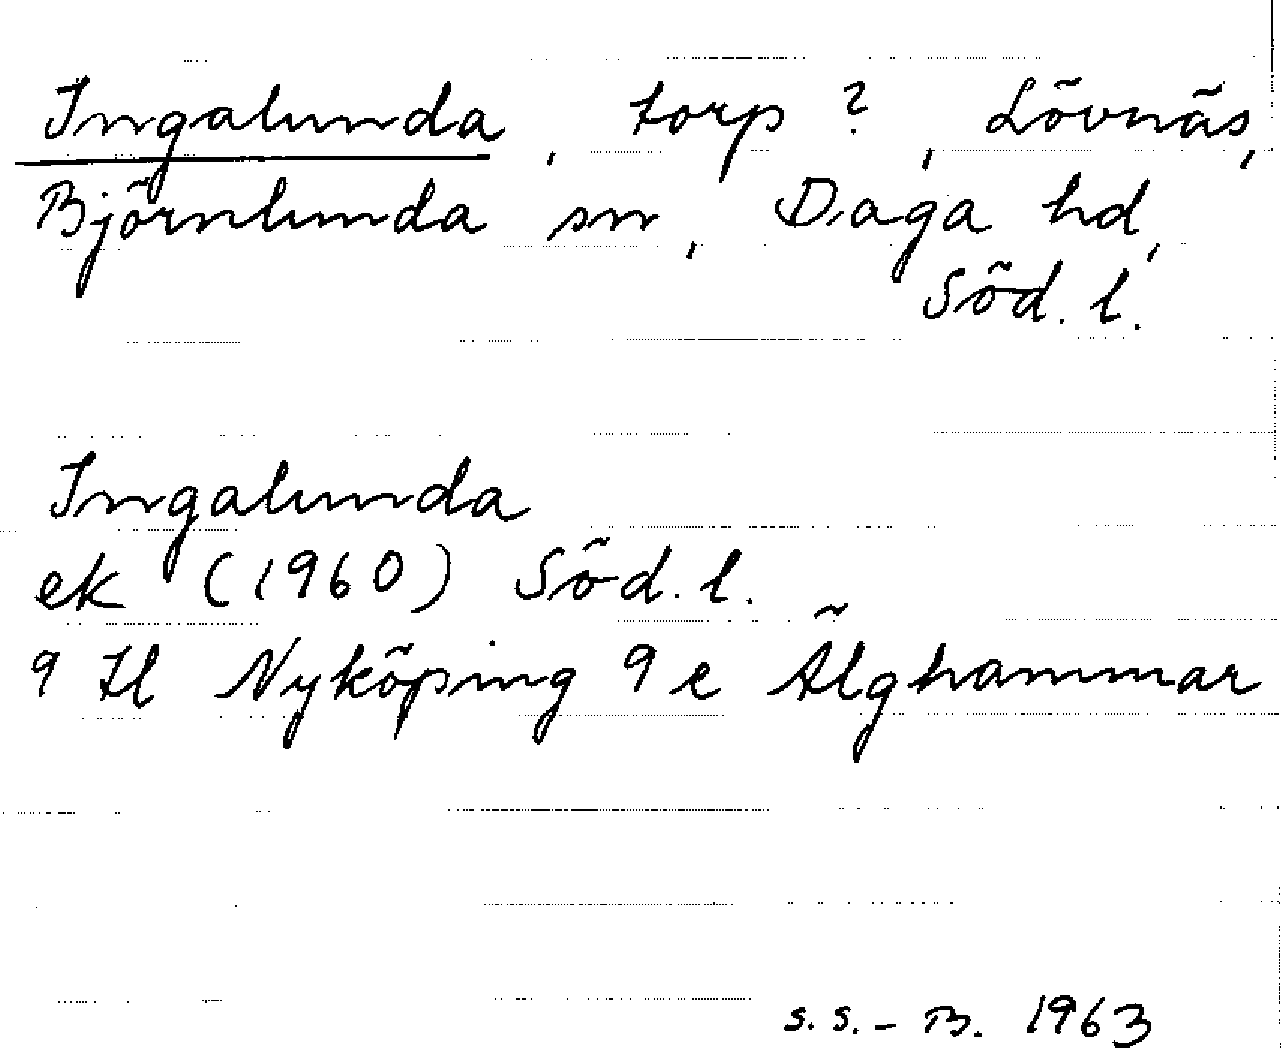 Ingalunda, torp ?, Lövnäs,
Björnlunda sn, Daga hd,
Söd. l.
Ingalunda
ek (1960) Söd. l.
9 H Nyköping 9 e Älghammar
s.s.-B. 1963